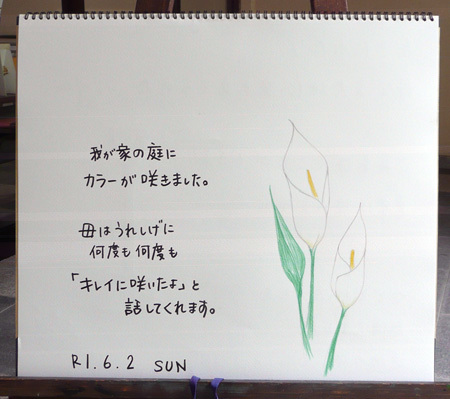 我が家の庭に
カラーが咲きました。
母はうれしげに
何度も何度も
「キレイに咲いたよ」と
話してくれます。
R1.6.2 SUN